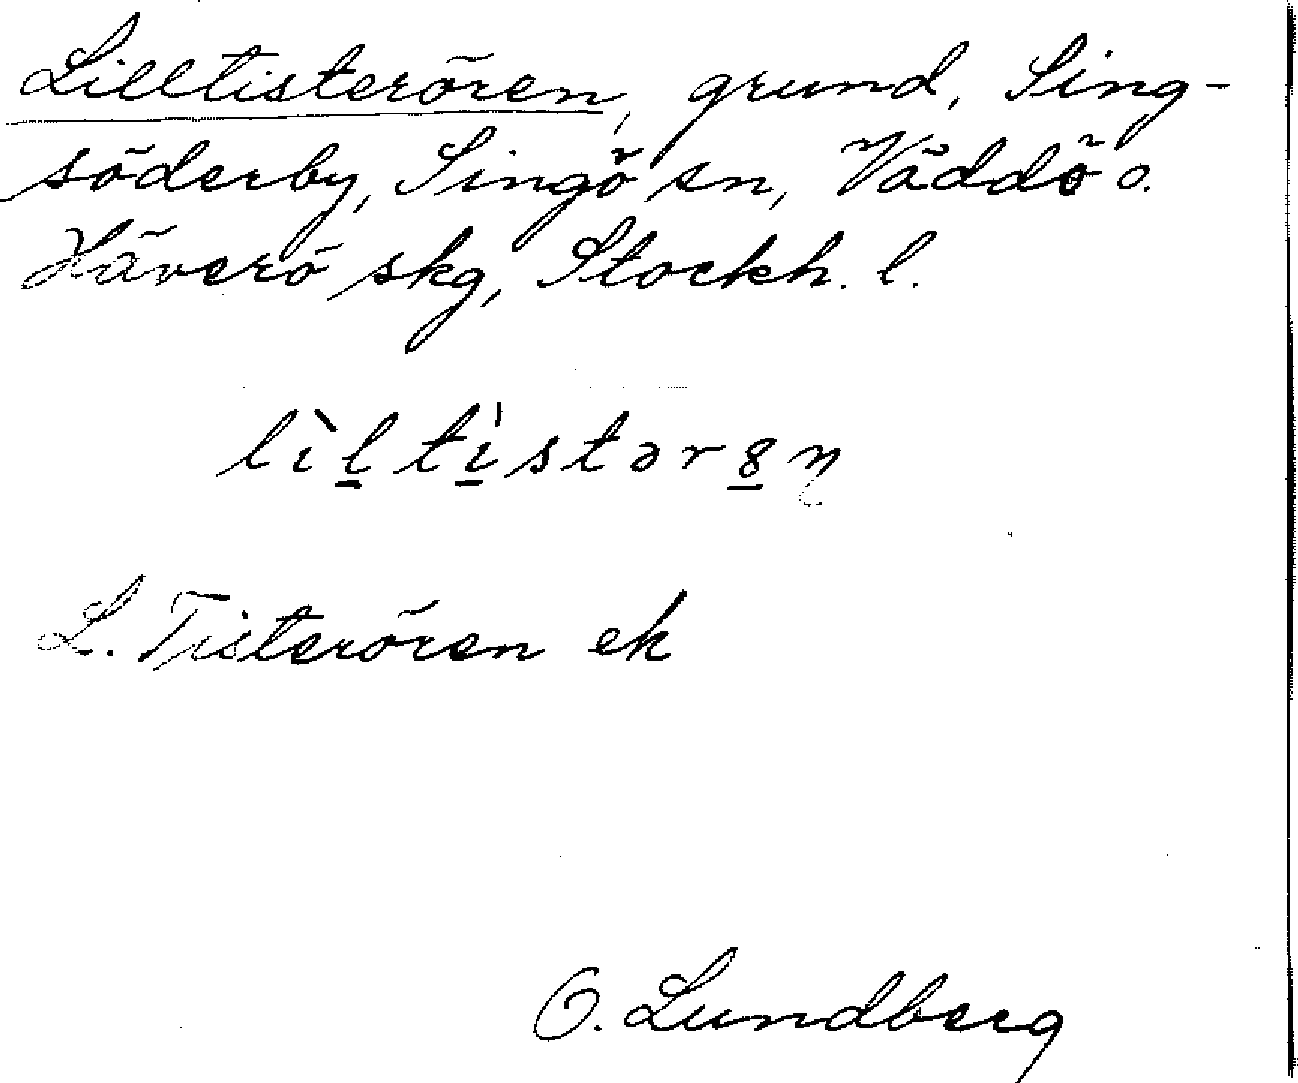 Lilltisterören, grund, Sing-
söderby, Singö sn, Väddö o.
Häverö skg, Stockh. l.
lìl̲ti̲̍stər8̲ɳ
L. Tisterören ek
O. Lundberg